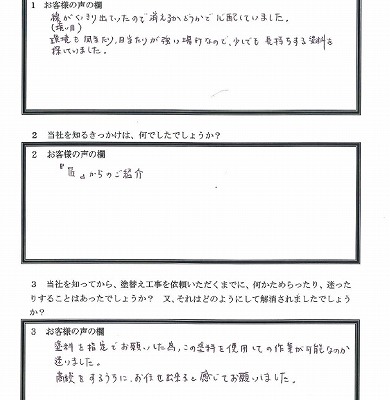 1 お客様の声の欄
線がくっきり出ていたので消えるかどうかで心配していました。
(境い目)
環境も風当たり、日当たりが強い場所なので、少しでも長持ちする塗料を
探していました。
2 当社を知るきっかけは、何でしたでしょうか?
2 お客様の声の欄
からのご紹介
3 当社を知ってから、塗替え工事を依頼いただくまでに、何かためらったり、迷った
りすることはあったでしょうか? 又、それはどのようにして解消されましたでしょう
か?
3 お客様の声の欄
塗料を指定でお願いした為、この塗料を使用しての作業が可能なのか
迷いました。
商談をするうちに、お任せ出来ると感じてお願いしました。